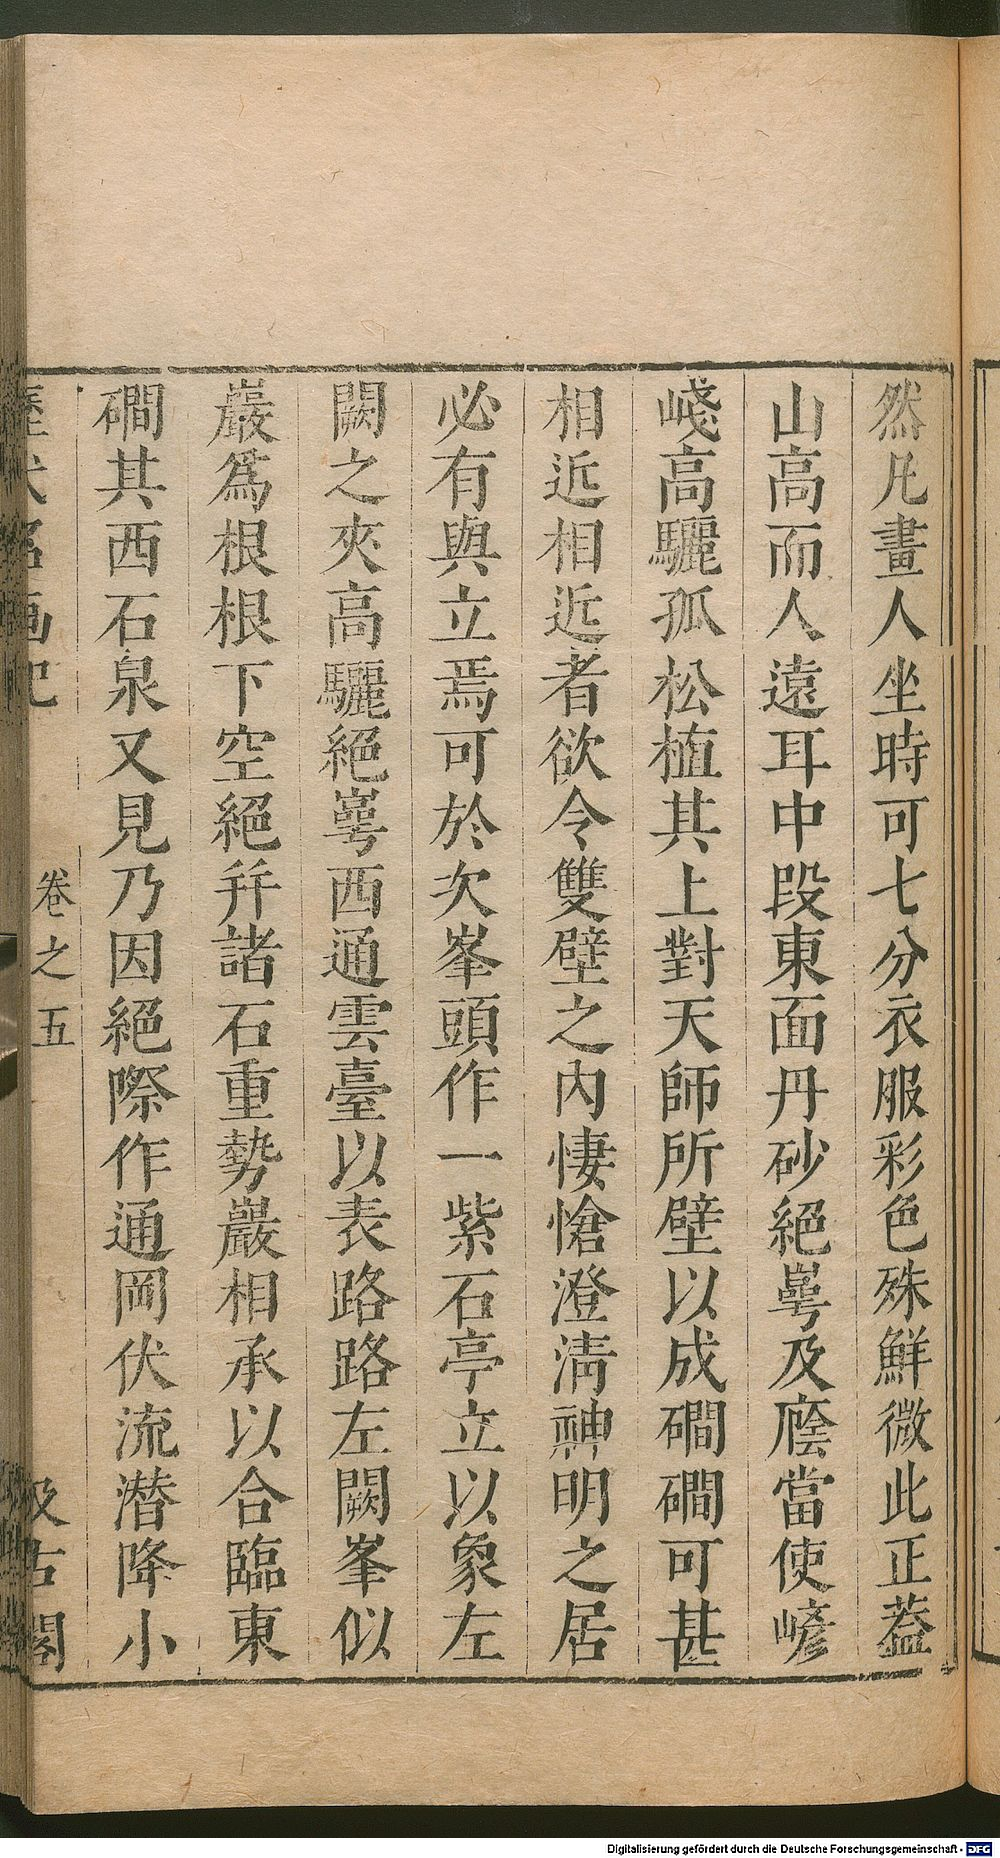 然凡畫人坐時可七分衣服彩色殊鮮微此正葢
山高而人遠耳中段東面丹砂絕崿及廕當使嵃
嶘高驪孤松植其上對天師所壁以成磵磵可甚
相近相近者欲令雙壁之內悽愴澄淸神明之居
必有與立焉可於次峯頭作一紫石亭立以象左
闕之夾高驪絕崿西通雲臺以表路路左闕峯似
巖爲根根下空絕幷諸石重勢巖相承以合臨東
磵其西石泉又見乃因絕際作通岡伏流潛降小
卷之五
Digitalisierung gefördert durch die Deutsche Forschungsgemeinschaft - DFG